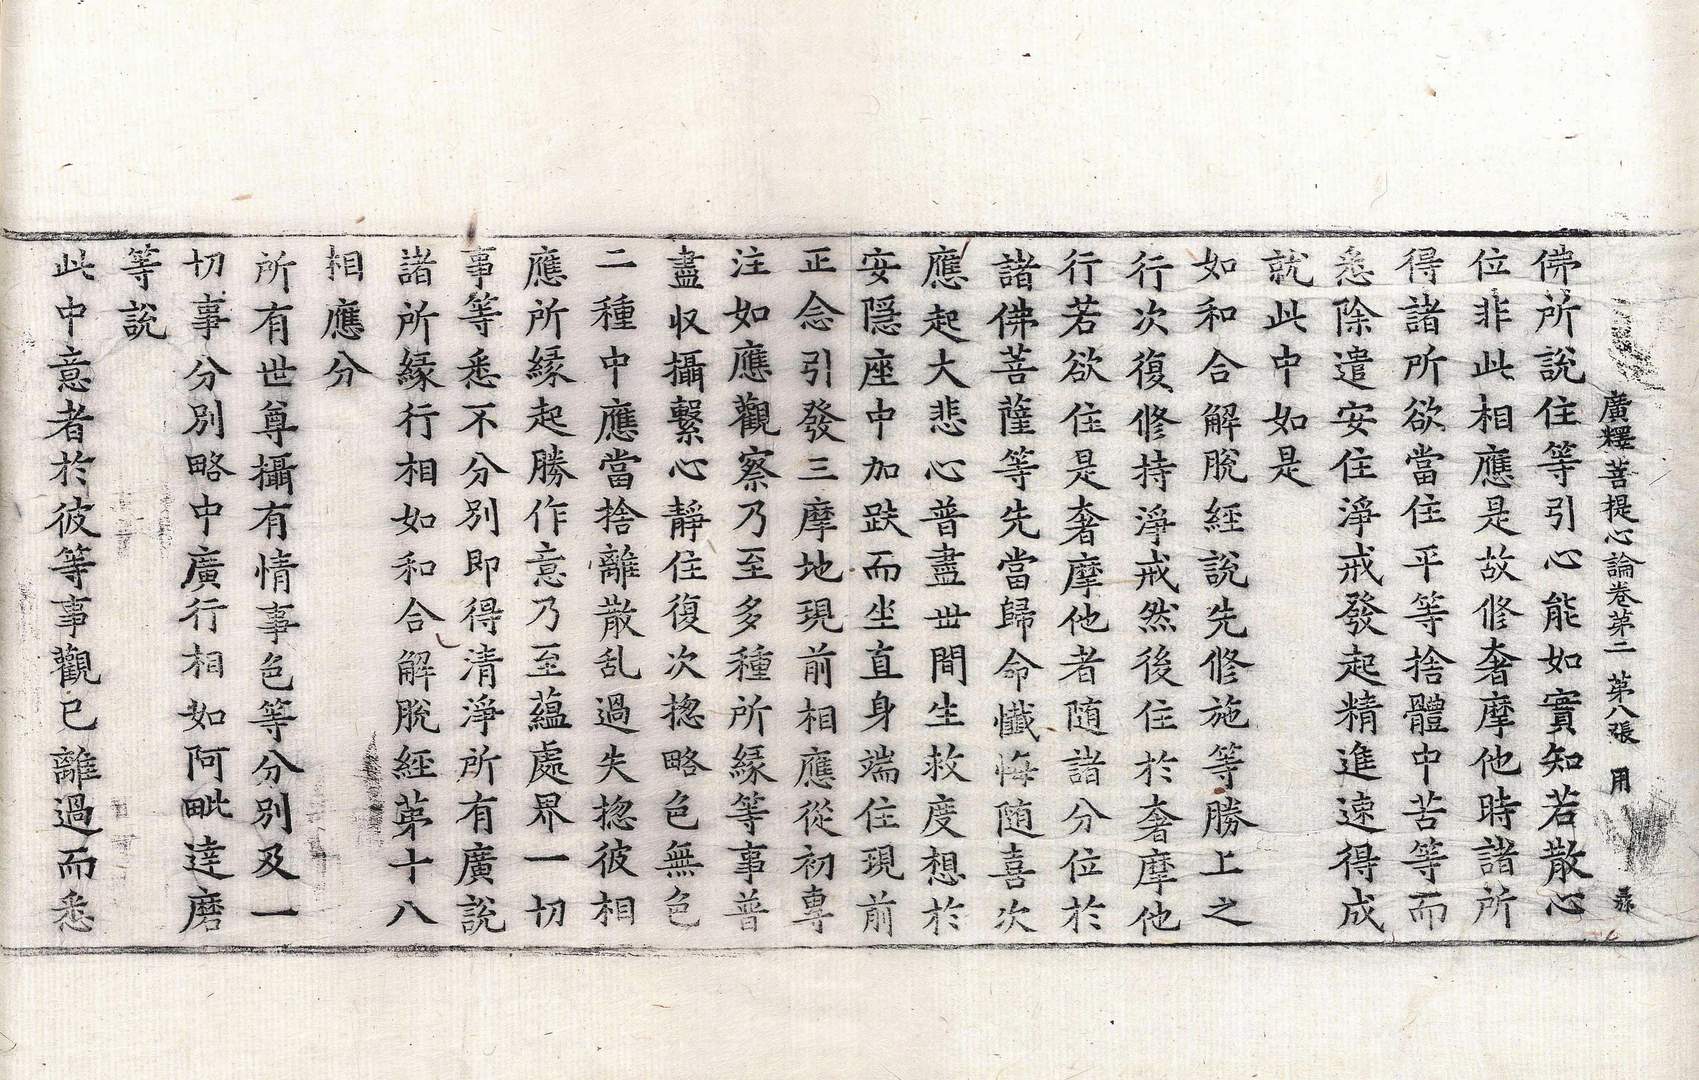 廣釋菩提心論卷第二 第八張 用
佛所說住等引心能如實知若散心
位非此相應是故修奢摩他時諸所
得諸所欲當住平等捨體中苦等而
悉除遣安住淨戒發起精進速得成
就此中如是
如和合解脫經說先修施等勝上之
行次復修持淨戒然後住於奢摩他
行若欲住是奢摩他者随諸分位於
諸佛菩薩等先當歸命懺悔随喜次
應起大悲心普盡世間生救度想於
安隱座中加趺而坐直身端住現前
正念引發三摩地現前相應從初專
注如應觀察乃至多種所縁等事普
盡収攝繫心靜住復次揔略色無色
二種中應當捨離散乱過失揔彼相
應所縁起勝作意乃至蘊處界一切
事等悉不分別即得清淨所有廣說
諸所縁行相如和合解脫經第十八
相應分
所有世尊攝有情事色等分別及一
切事分別略中廣行相如阿毗達磨
等說
此中意者於彼等事觀已離過而悉